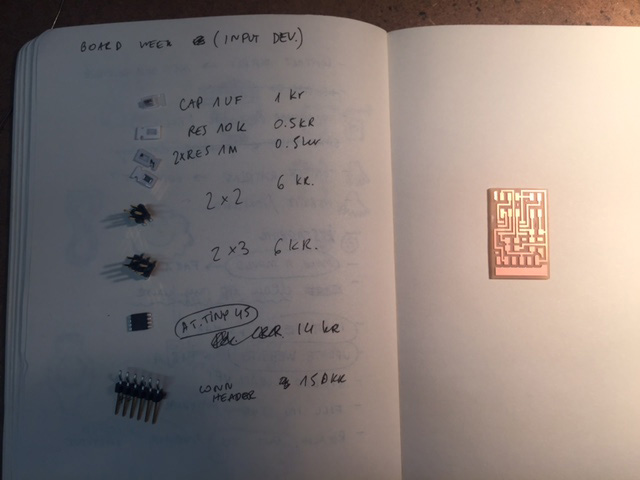 BOARD WEEK (INPUT DEV.)
CAP 1UF 1 kr
RES 10K 0.5KR
2XRES 1M 0.5kr
2x2 6 KR.
2x3 6 KR.
AT.TINY 45
14 KR
CONN HEADER